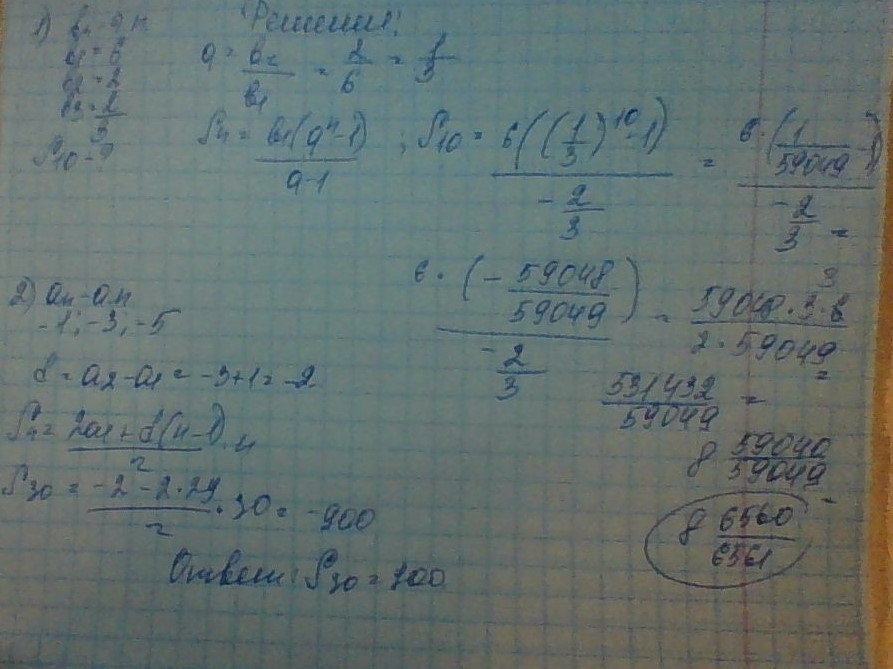 Решение:
1) bn - г.п.
b1 = 6
b2 = 2
b3 = 2/3
S10 - ?
q = b2/b1 = 2/6 = 1/3
Sn = b1(q^n - 1)/(q - 1) ; S10 = 6((1/3)^10 - 1)/(-2/3) = 6·(1/59049 - 1)/(-2/3) =
6·(-59048/59049)/(-2/3) = 59048·3·6/(2·59049) =
531432/59049 =
8 59040/59049 =
8 6560/6561
2) an - а.п
-1; -3; -5
d = a2 - a1 = -3+1 = -2
Sn = (2a1 + d(n-1))/2 · n
S30 = (-2 - 2·29)/2 · 30 = -900
Ответ: S30 = 900